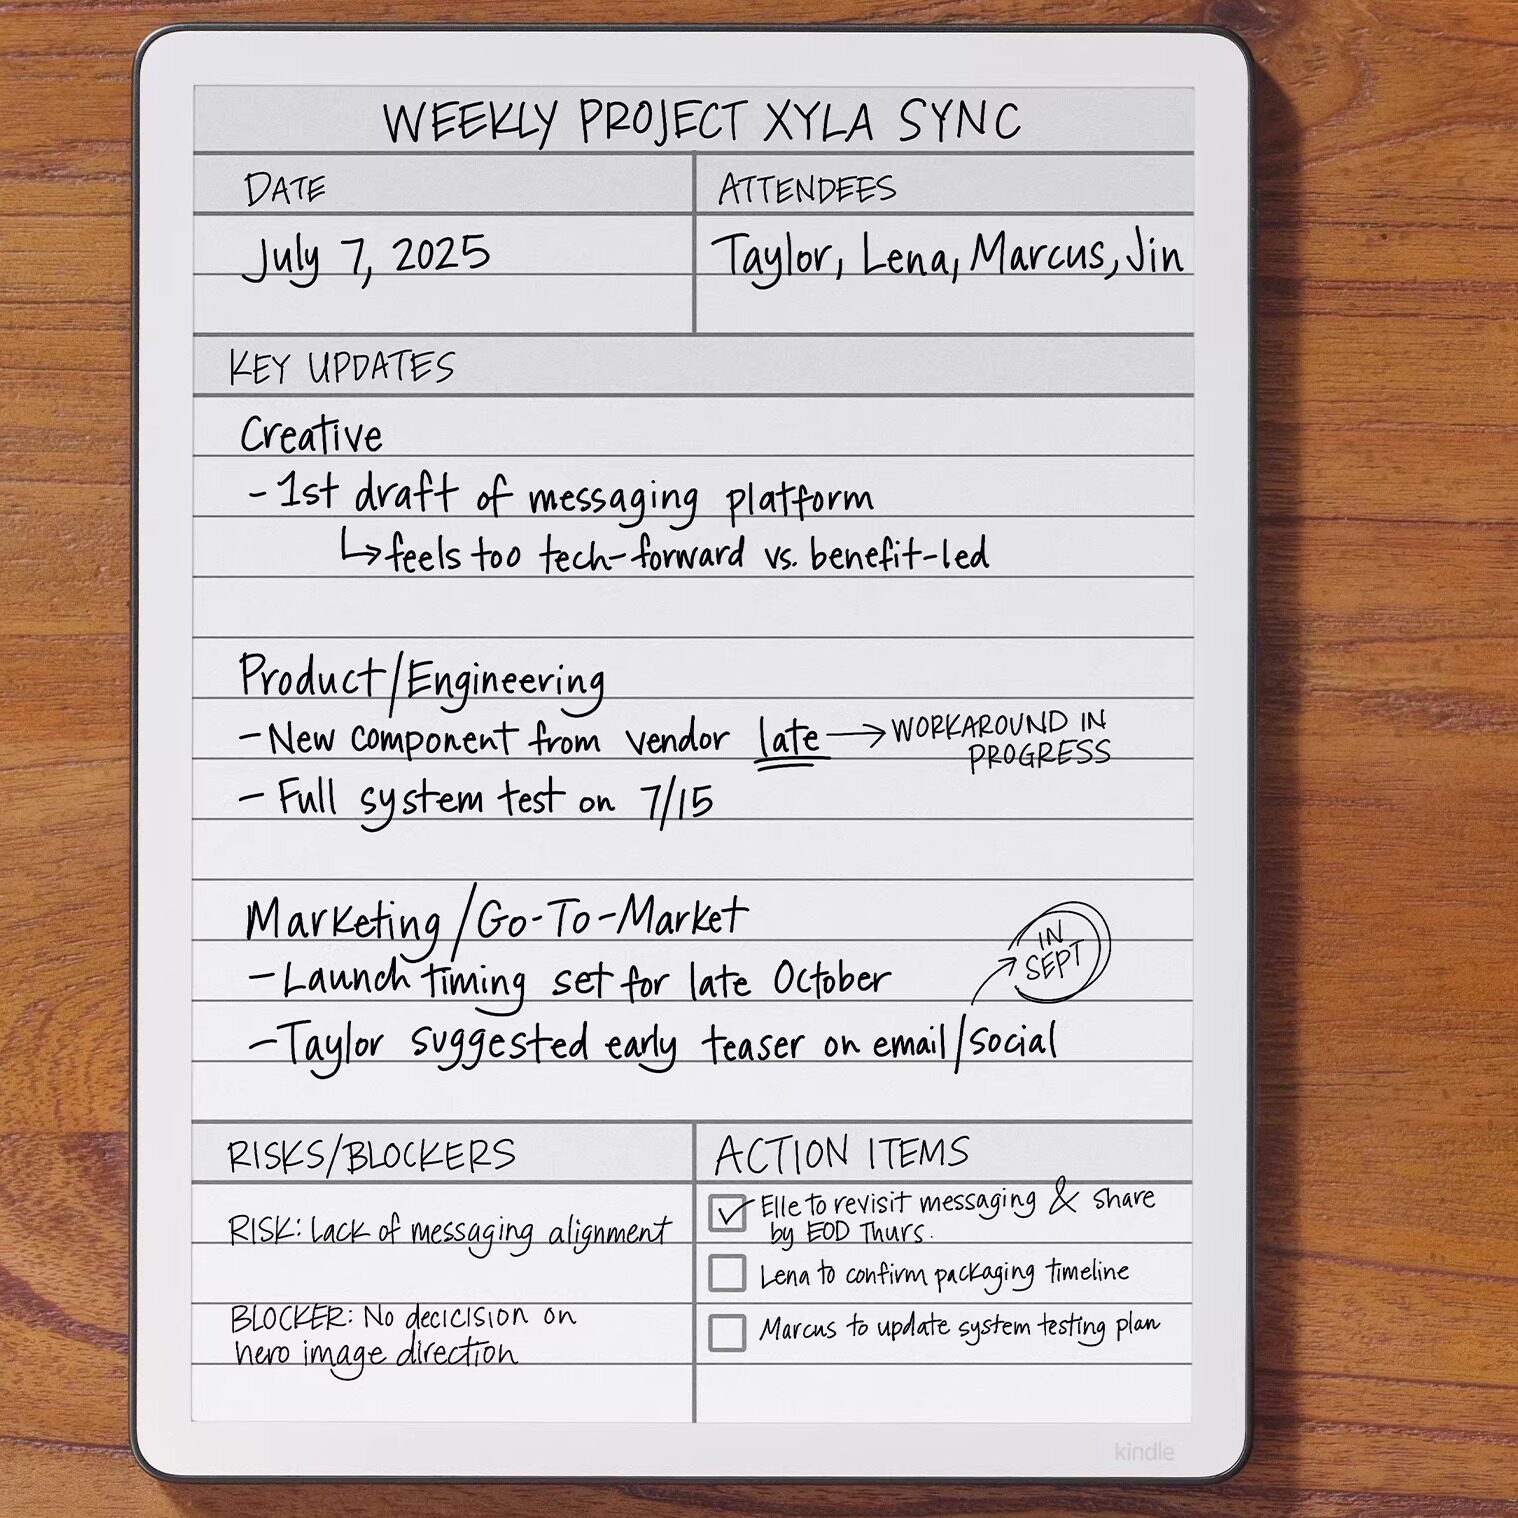 WEEKLY PROJECT XYLA SYNC
DATE
ATTENDEES
July 7, 2025
Taylor, Lena, Marcus, Jin
KEY UPDATES
Creative
- 1st draft of messaging platform
↳ feels too tech-forward vs. benefit-led
Product/Engineering
- New component from vendor late → WORKAROUND IN
PROGRESS
- Full system test on 7/15
Marketing/Go-To-Market
- Launch timing set for late October
IN
SEPT
- Taylor suggested early teaser on email/social
RISKS/BLOCKERS
RISK: Lack of messaging alignment
BLOCKER: No decicision on
hero image direction
ACTION ITEMS
☑ Elle to revisit messaging & share
by EOD Thurs.
☐ Lena to confirm packaging timeline
☐ Marcus to update system testing plan
kindle